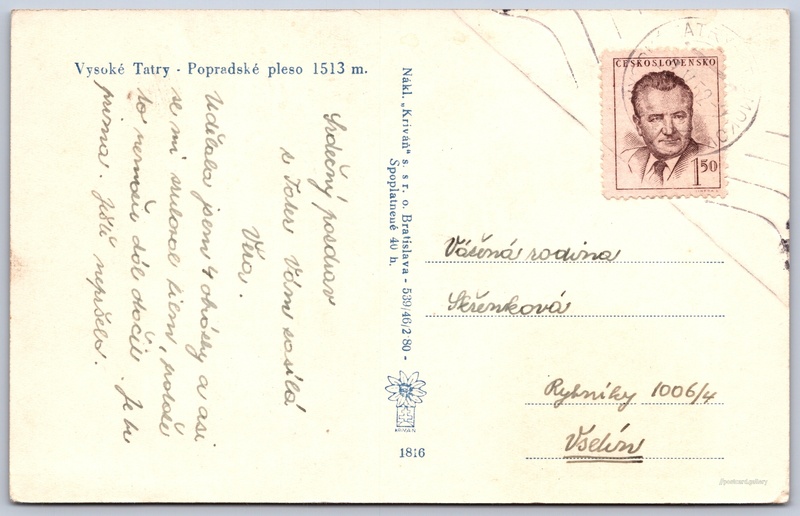 Vysoké Tatry - Popradské pleso 1513 m.
Srdečný pozdrav
s Tater Vám zasílá
Věra.
Udělala jsem 4 obrázky a asi
se mi
to nemohu dál točit. Je tu
prima. Ještě nepršelo.
Nákl. „Kriváň" s. s r. o. Bratislava - 539/46/2·80 -
Spoplatnené 40 h.
KRIVÁŇ
1816
ČESKOSLOVENSKO
1 50
Vážená rodina
Skřenková
Rybníky 1006/4
Vsetín